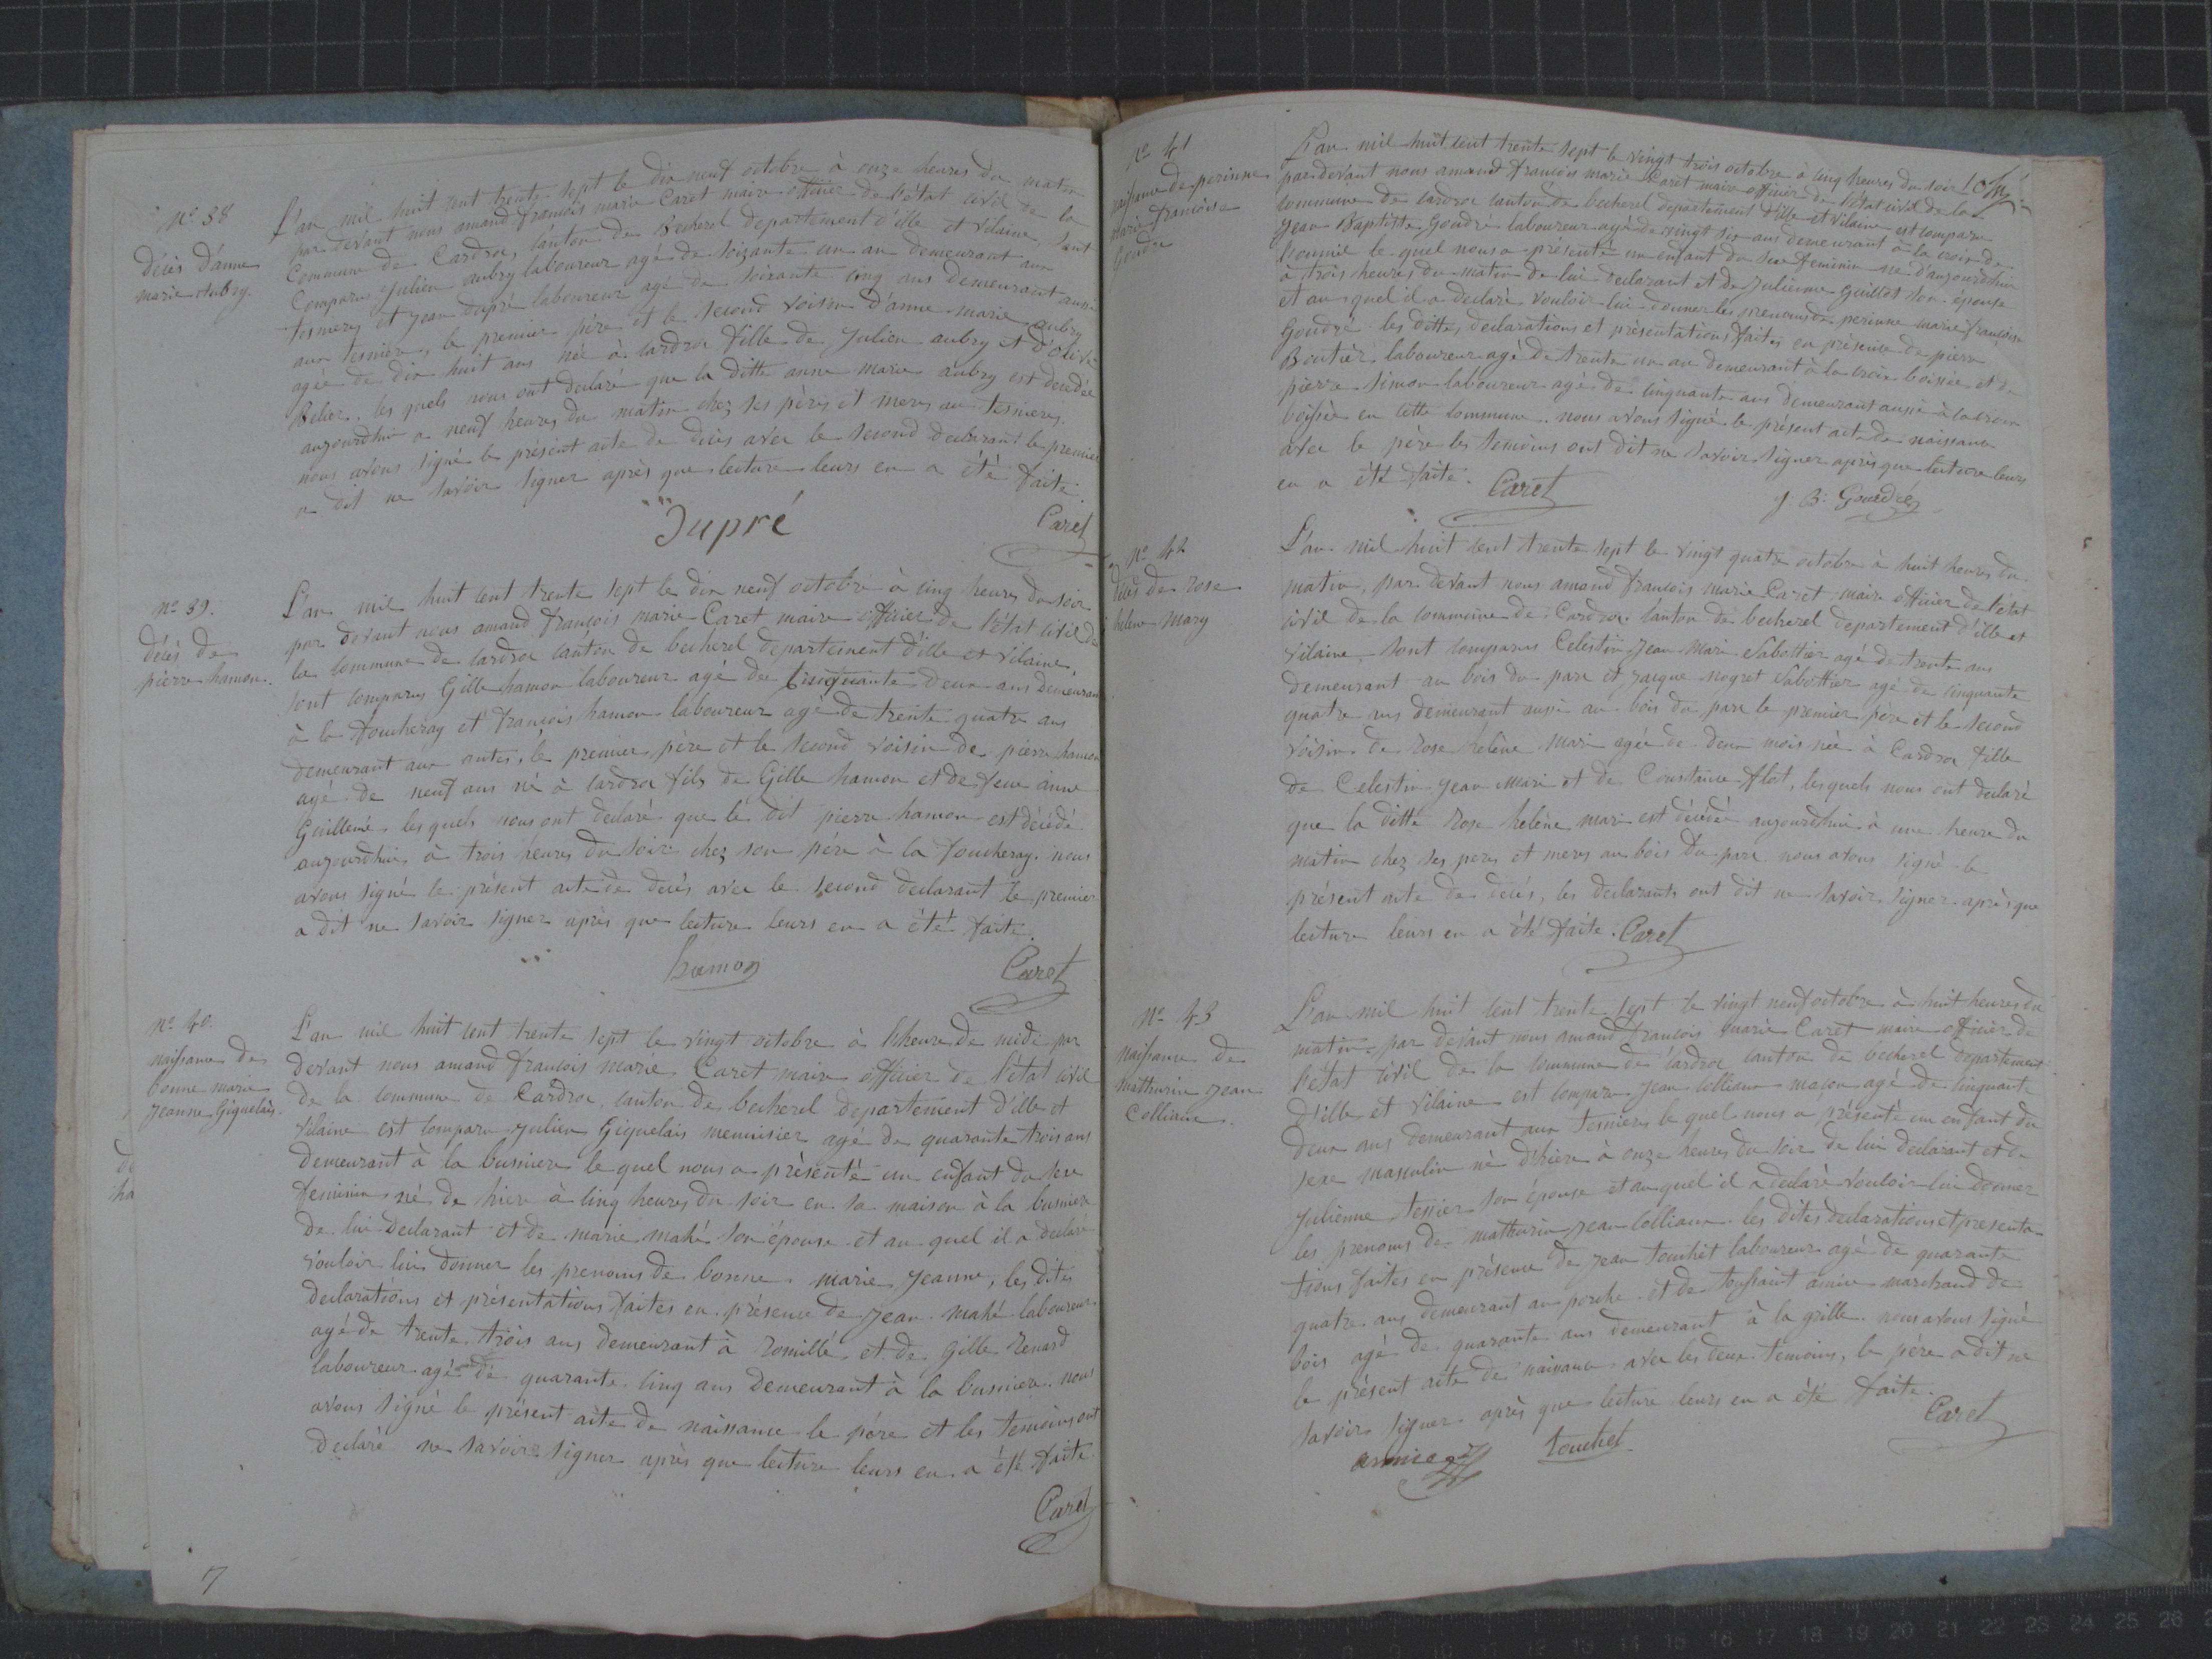 N° 38
décès d'anne
marie aubry.
L'an mil huit cent trente sept le dix neuf octobre à onze heures du matin
par devant nous amand françois marie Caret maire officier de l'état civil de la
Commune de Cardroc, canton de Becherel departement d'ille et Vilaine, sont
Comparus Julien aubry laboureur agé de soixante un an demeurant aux
tesnieres et jean dupré laboureur agé de soixante cinq ans demeurant aussi
aux tesnieres, le premier père et le second voisin d'anne marie aubry
agée de dix huit ans née à cardroc fille de Julien aubry et d'olive
Belier. les quels nous ont declaré que la ditte anne marie aubry est decedée
aujourdhui a neuf heures du matin chez ses pères et meres au tesnieres.
nous avons signé le présent acte de décès avec le second declarant le premier
a dit ne savoir signer après que lecture leurs en a été faite.
Dupré
Caret
n° 39.
décès de
pierre hamon.
L'an mil huit cent trente sept le dix neuf octobre à cinq heures du soir
par devant nous amand françois marie Caret maire officier de l'état civil de
la commune de cardroc canton de becherel departement d'ille et vilaine,
sont comparus Gille hamon laboureur agé de cinquante deux ans demeurant
à la toucheray et françois hamon laboureur agé de trente quatre ans
demeurant aux rutes, le premier père et le second voisin de pierre hamon
agé de neuf ans né à cardroc fils de Gille hamon et de feue anne
Guillemé. les quels nous ont declaré que le dit pierre hamon est décédé
aujourdhui à trois heures du soir chez son père à la toucheray. nous
avons signé le présent acte de decès avec le second declarant le premier
a dit ne savoir signer après que lecture leurs en a été faite.
hamon
Caret
N° 40.
naissance de
bonne marie
jeanne Giquelais.
L'an mil huit cent trente sept le vingt octobre à l'heure de midi par
devant nous amand françois marie Caret maire officier de l'état civil
de la commune de Cardroc, canton de becherel departement d'ille et
Vilaine est comparu julien Giquelais menuisier agé de quarante trois ans
demeurant à la busniere le quel nous a présenté un enfant du sexe
feminin né de hier à cinq heures du soir en sa maison à la busniere
de lui declarant et de marie mahé son épouse et au quel il a declaré
vouloir lui donner les prenoms de bonne marie jeanne, les dites
declarations et présentations faites en présence de jean mahé laboureur
agé de trente trois ans demeurant à romillé et de gille Renard
laboureur agé de quarante cinq ans demeurant à la busniere. nous
avons signé le présent acte de naissance le père et les temoins ont
declaré ne savoir signer après que lecture leurs en a été faite.
Caret
7
N° 41
naissance de perinne
marie françoise
Goudré
L'an mil huit cent trente sept le vingt trois octobre à cinq heures du soir
par devant nous amand françois marie Caret maire officier de l'état civil de la
commune de cardroc canton de becherel departement d'ille et vilaine est comparu
jean Baptiste Goudré laboureur agé de vingt six ans demeurant à la croix de
le quel nous a présenté un enfant du sexe feminin né d'aujourdhui
à trois heures du matin de lui declarant et de julienne Guillot son epouse
et au quel il a declaré vouloir lui donner les prenoms de perinne marie françoise
Goudré. les dittes declarations et présentations faites en présence de pierre
Boutier laboureur agé de trente un an demeurant à la croix boissée et de
pierre simon laboureur agé de cinquante ans demeurant aussi à la croix
boissée en cette commune. nous avons signé le présent acte de naissance
avec le père les temoins ont dit ne savoir signer après que lecture leurs
en a été faite. Caret
J. B. Gouedré
N° 42
décès de rose
helene mary
L'an mil huit cent trente sept le vingt quatre octobre à huit heures du
matin, par devant nous amand françois marie Caret maire officier de l'état
civil de la commune de Cardroc canton de becherel departement d'ille et
vilaine, sont comparus Celestin jean Mari Sabottier agé de trente ans
demeurant au bois du parc et jacque noyret Sabottier agé de cinquante
quatre ans demeurant aussi au bois du parc le premier père et le second
voisin de rose helène Mari agée de deux mois née à Cardroc fille
de Celestin jean Mari et de Constance flot, les quels nous ont declaré
que la ditte rose helène mari est décédée aujourdhui à une heure du
matin chez ses peres et meres au bois du parc. nous avons signé le
présent acte de decès, les declarants ont dit ne savoir signer après que
lecture leurs en a été faite. Caret
N° 43
naissance de
mathurin jean
Colliaux.
L'an mil huit cent trente sept le vingt neuf octobre à huit heures du
matin par devant nous amand françois marie Caret maire officier de
l'état civil de la commune de cardroc canton de becherel departement
d'ille et Vilaine est comparu jean Colliaux maçon agé de cinquante
deux ans demeurant aux tesnieres le quel nous a présenté un enfant du
sexe masculin né d'hiere à onze heures du soir de lui declarant et de
julienne tessier son épouse et au quel il a declaré vouloir lui donner
les prenoms de mathurin jean Colliaux. les dites declarations et presenta-
tions faites en présence de jean touchet laboureur agé de quarante
quatre ans demeurant au porche et de toussaint amice marchand de
bois agé de quarante ans demeurant à la grille. nous avons signé
le présent acte de naissance avec les deux temoins, le père a dit ne
savoir signer après que lecture leurs en a été faite.
Caret
amice touchet